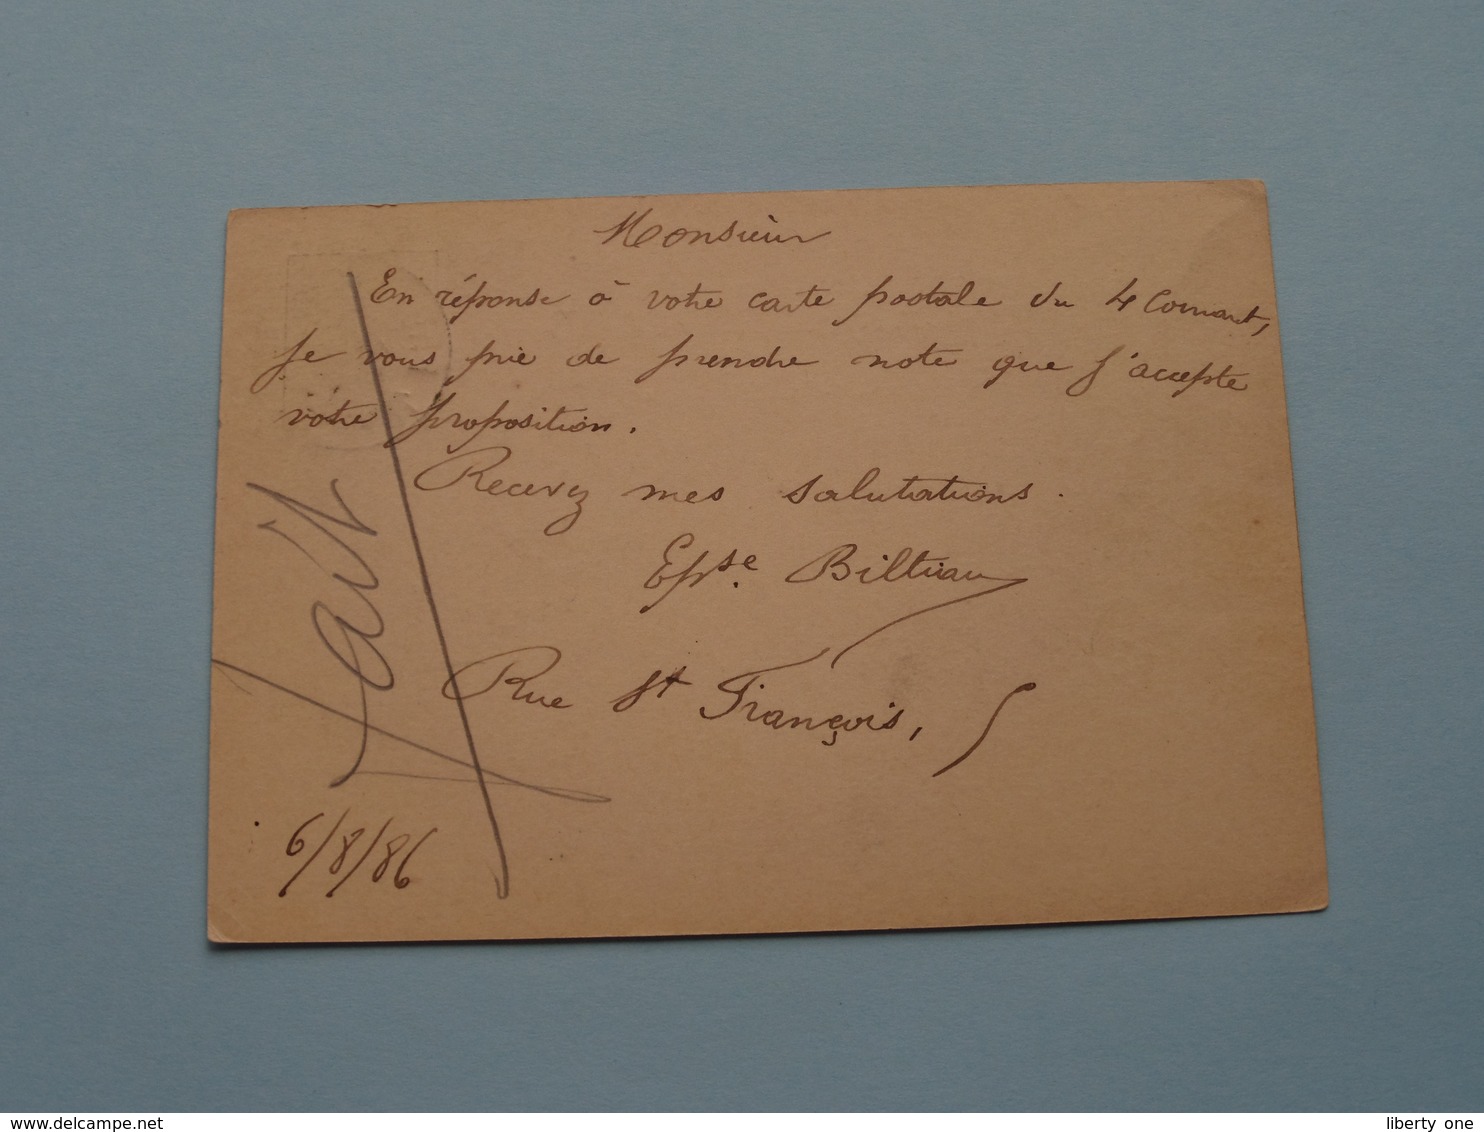 Monsieur
En réponse à votre carte postale du 4 Courant,
je vous prie de prendre note que j'accepte
votre proposition.
Recevez mes salutations.
Epse.
Rue St François, 5
fait
6/8/86
www.delcampe.net
liberty one